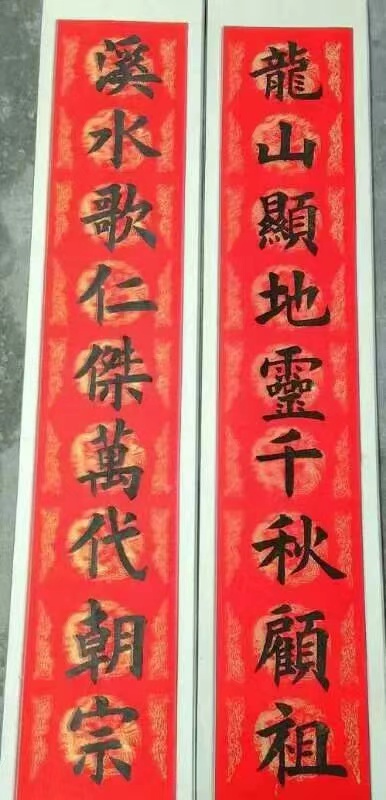 龍山顯地靈千秋顧祖
溪水歌仁傑萬代朝宗